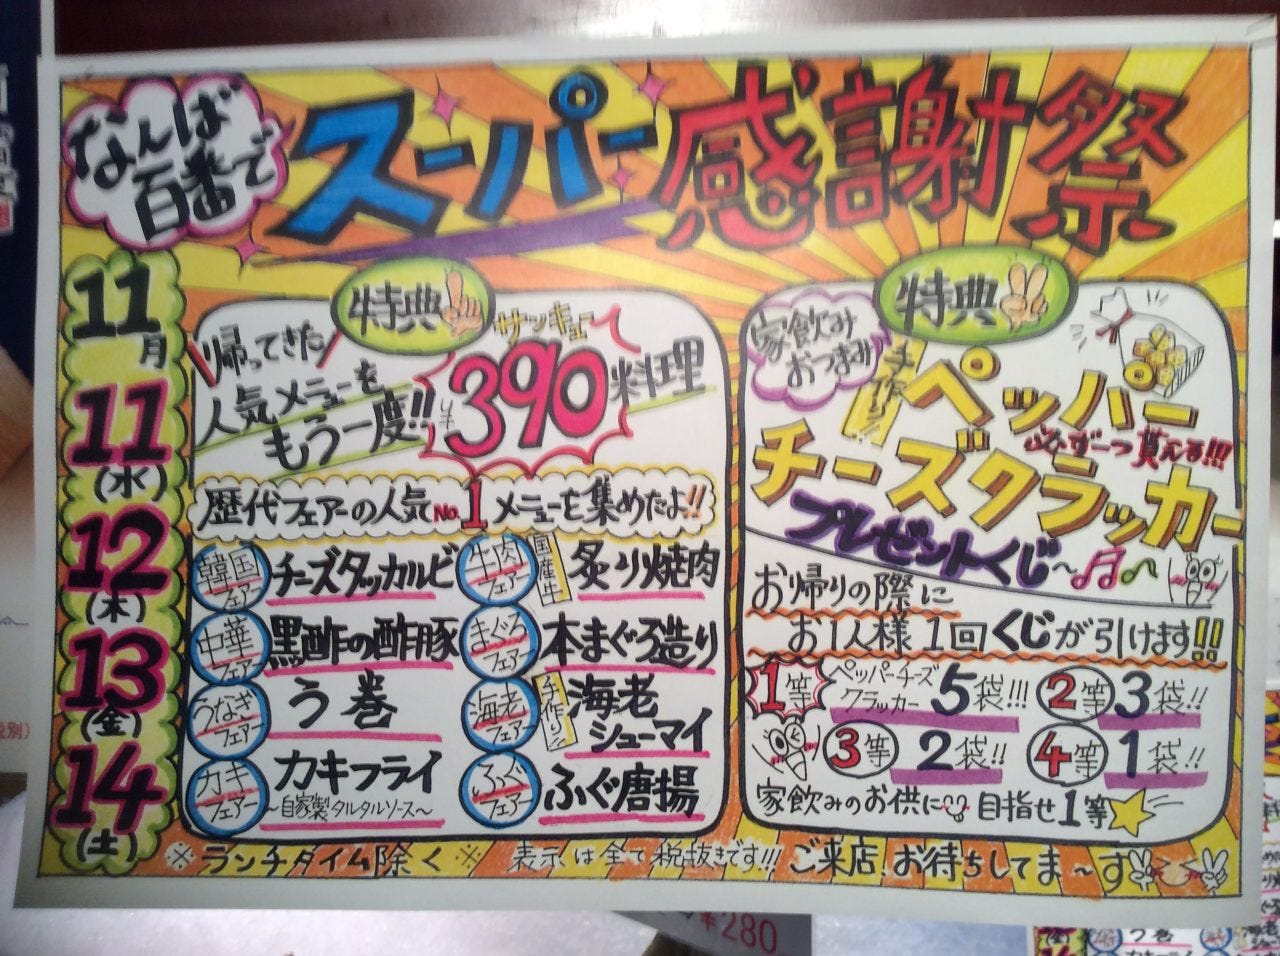 なんば
百番で
スーパー感謝祭
11月
11(水)
12(木)
13(金)
14(土)
特典
帰ってきた
人気メニューを
もう一度!!
サンキュー
¥390料理
歴代フェアーの人気No.1メニューを集めたよ!!
韓国フェアー チーズタッカルビ
牛肉フェアー 国産牛 炙り焼肉
中華フェアー 黒酢の酢豚
まぐろフェアー 本まぐろ造り
うなぎフェアー う巻
海老フェアー 手作り! 海老シューマイ
カキフェアー カキフライ
〜自家製タルタルソース〜
ふぐフェアー ふぐ唐揚
特典
家飲み
おつまみ
手作り!
ペッパー
必ず一つ貰える!!!
チーズクラッカー
プレゼントくじ〜
お帰りの際に
お1人様1回くじが引けます!!
1等 ペッパーチーズクラッカー 5袋!!! 2等 3袋!!
3等 2袋!! 4等 1袋!!
家飲みのお供に 目指せ1等
※ランチタイム除く※ 表示は全て税抜きです!!! ご来店お待ちしてま〜す
¥280